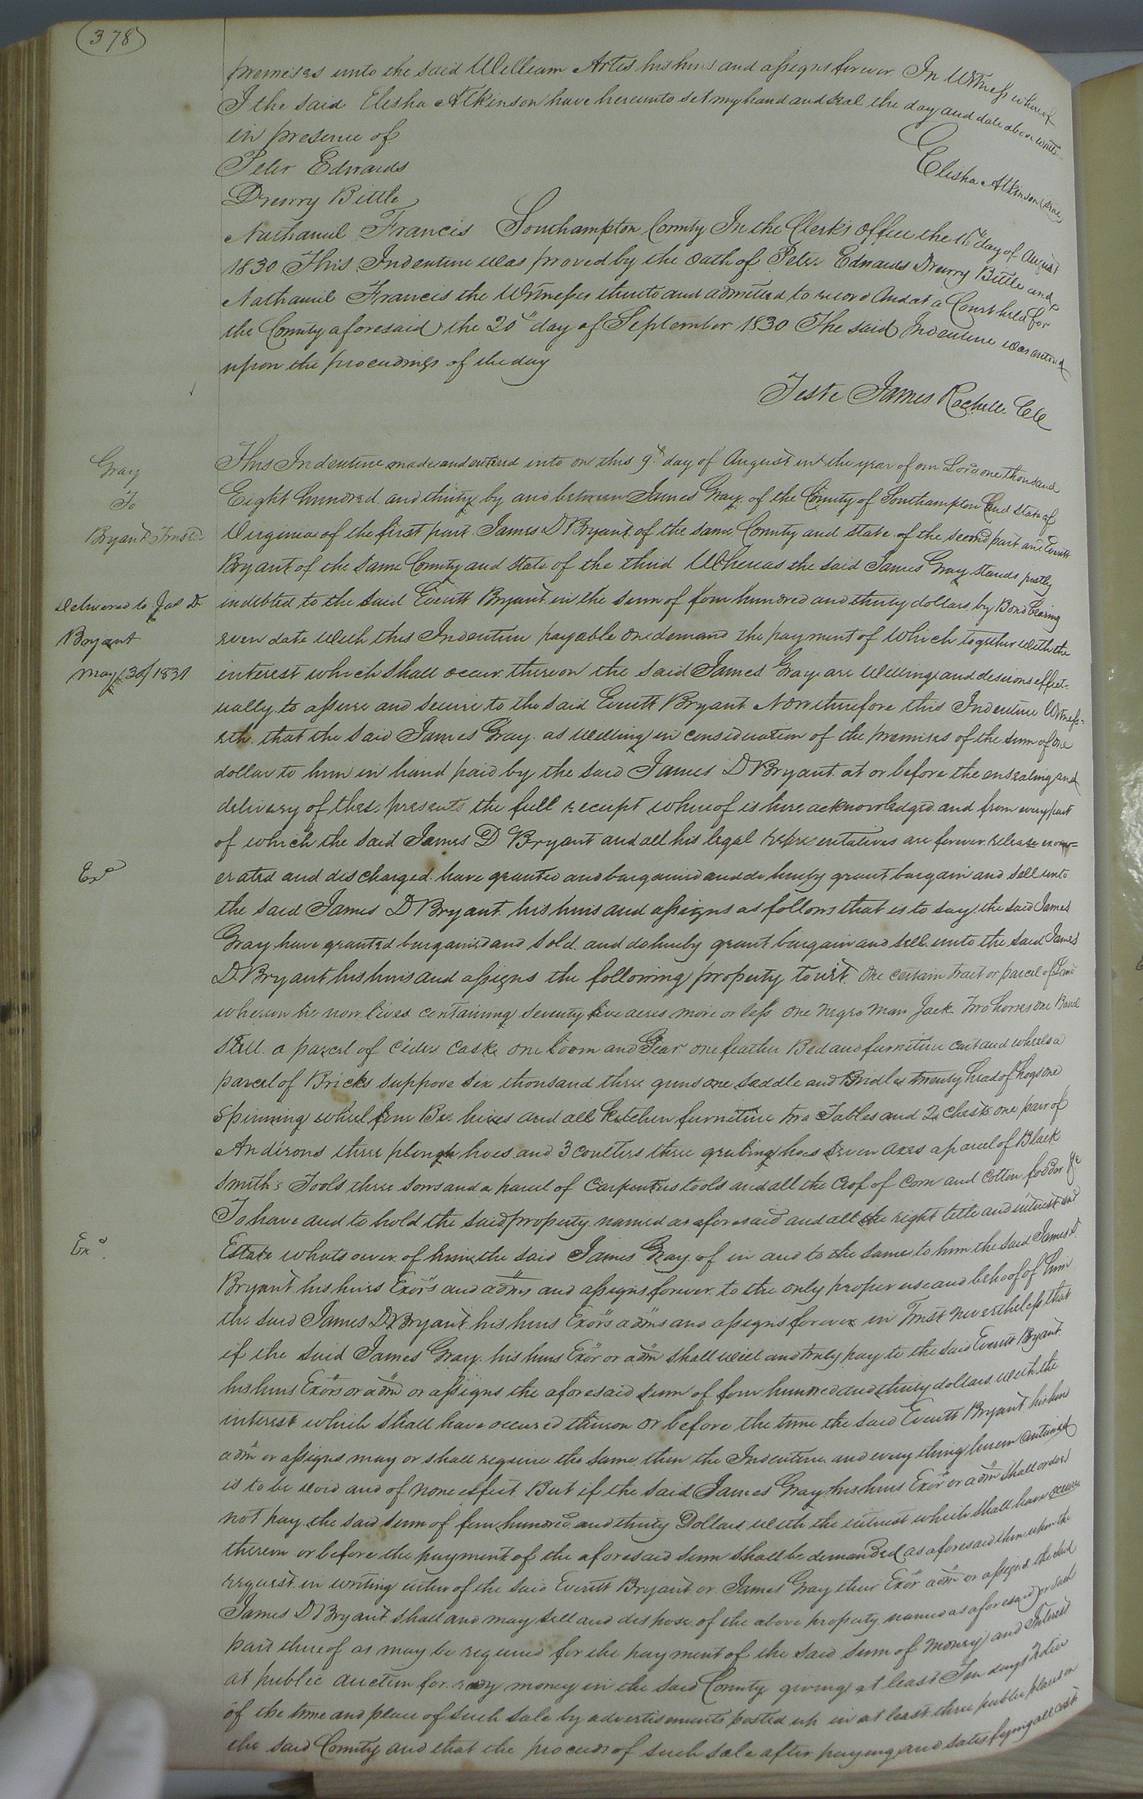 378
premises unto the said William Artis his heirs and assigns forever In Witness whereof
I the said Elisha Atkinson have hereunto set my hand and seal the day and date above
in presence of
Elisha Atkinson
Peter Edwards
Drewry Bittle
Nathaniel Francis Southampton County In the Clerk's office the day of August
1830 This Indenture was proved by the oath of Peter Edwards Drewry Bittle and
Nathaniel Francis the Witnesses thereto and admitted to record And at a Court held for
the County aforesaid the 20th day of September 1830 The said Indenture was entered
upon the proceedings of the day
Teste James Rochelle
Gray
To
Bryant Trust
Delivered to Jas D
Bryant
May 30 1831
This Indenture made and entered into on this 9th day of August in the year of our Lord one thousand
Eight hundred and thirty by and between James Gray of the County of Southampton and State of
Virginia of the first part James D Bryant of the same County and state of the second part and Everitt
Bryant of the same County and state of the third Whereas the said James Gray stands justly
indebted to the said Everitt Bryant in the sum of four hundred and thirty dollars by Bond bearing
even date with this Indenture payable on demand the payment of which together with the
interest which shall occur thereon the said James Gray are willing and desirous effect-
ually to assure and secure to the said Everitt Bryant Now therefore this Indenture Witness-
eth that the said James Gray as welling in consideration of the premises of the sum of one
dollar to him in hand paid by the said James D Bryant at or before the ensealing and
delivery of these presents the full receipt whereof is here acknowledged and from every part
of which the said James D Bryant and all his legal representatives are forever release exon-
Exd
erated and discharged have granted and bargained and do hereby grant bargain and sell unto
the said James D Bryant his heirs and assigns as follows that is to say the said James
Gray have granted bargained and sold and do hereby grant bargain and sell unto the said James
D Bryant his heirs and assigns the following property towit one certain tract or parcel of Land
whereon he now lives containing seventy five acres more or less one negro man Jack two horses one Brand
Still a parcel of cider casks one loom and Gear one feather Bed and furniture cart and wheels a
parcel of Bricks suppose six thousand three guns one saddle and Bridle twenty head of hogs one
spinning wheel four Bee hives and all kitchen furniture two Tables and 2 chests one pair of
Andirons three plough hoes and 3 coulters three grubing hoes seven axes a parcel of Black
smith's Tools three sows and a parcel of carpenters tools and all the crop of corn and cotton fodder &c
To have and to hold the said property named as aforesaid and all the right title and interest and
Exd.
Estate whatsoever of him the said James Gray of in and to the same to him the said James D.
Bryant his heirs Exors and adms and assigns forever to the only proper use and behoof of him
the said James D Bryant his heirs Exors adms and assigns forever in Trust nevertheless that
if the said James Gray his heirs Exor or adm shall well and truly pay to the said Everitt Bryant
his heirs Exors or adm or assigns the aforesaid sum of four hundred and thirty dollars with the
interest which shall have occured thereon or before the time the said Everitt Bryant his heirs
adm or assigns may or shall require the same then the Indenture and every thing herein contained
is to be void and of none effect But if the said James Gray his heirs Exor or adm shall or do
not pay the said sum of four hundred and thirty Dollars with the interest which shall have occured
thereon or before the payment of the aforesaid sum shall be demanded as aforesaid then upon the
request in writing either of the said Everitt Bryant or James Gray their Exor adm or assigns the said
James D Bryant shall and may sell and dispose of the above property named as aforesaid or such
part thereof as may be required for the payment of the said sum of money and Interest
at public auction for redy money in the said County giving at least Ten days notice
of the time and place of such sale by advertisements posted up in at least three public places in
the said County and that the proceeds of such sale after paying and satisfying all cost